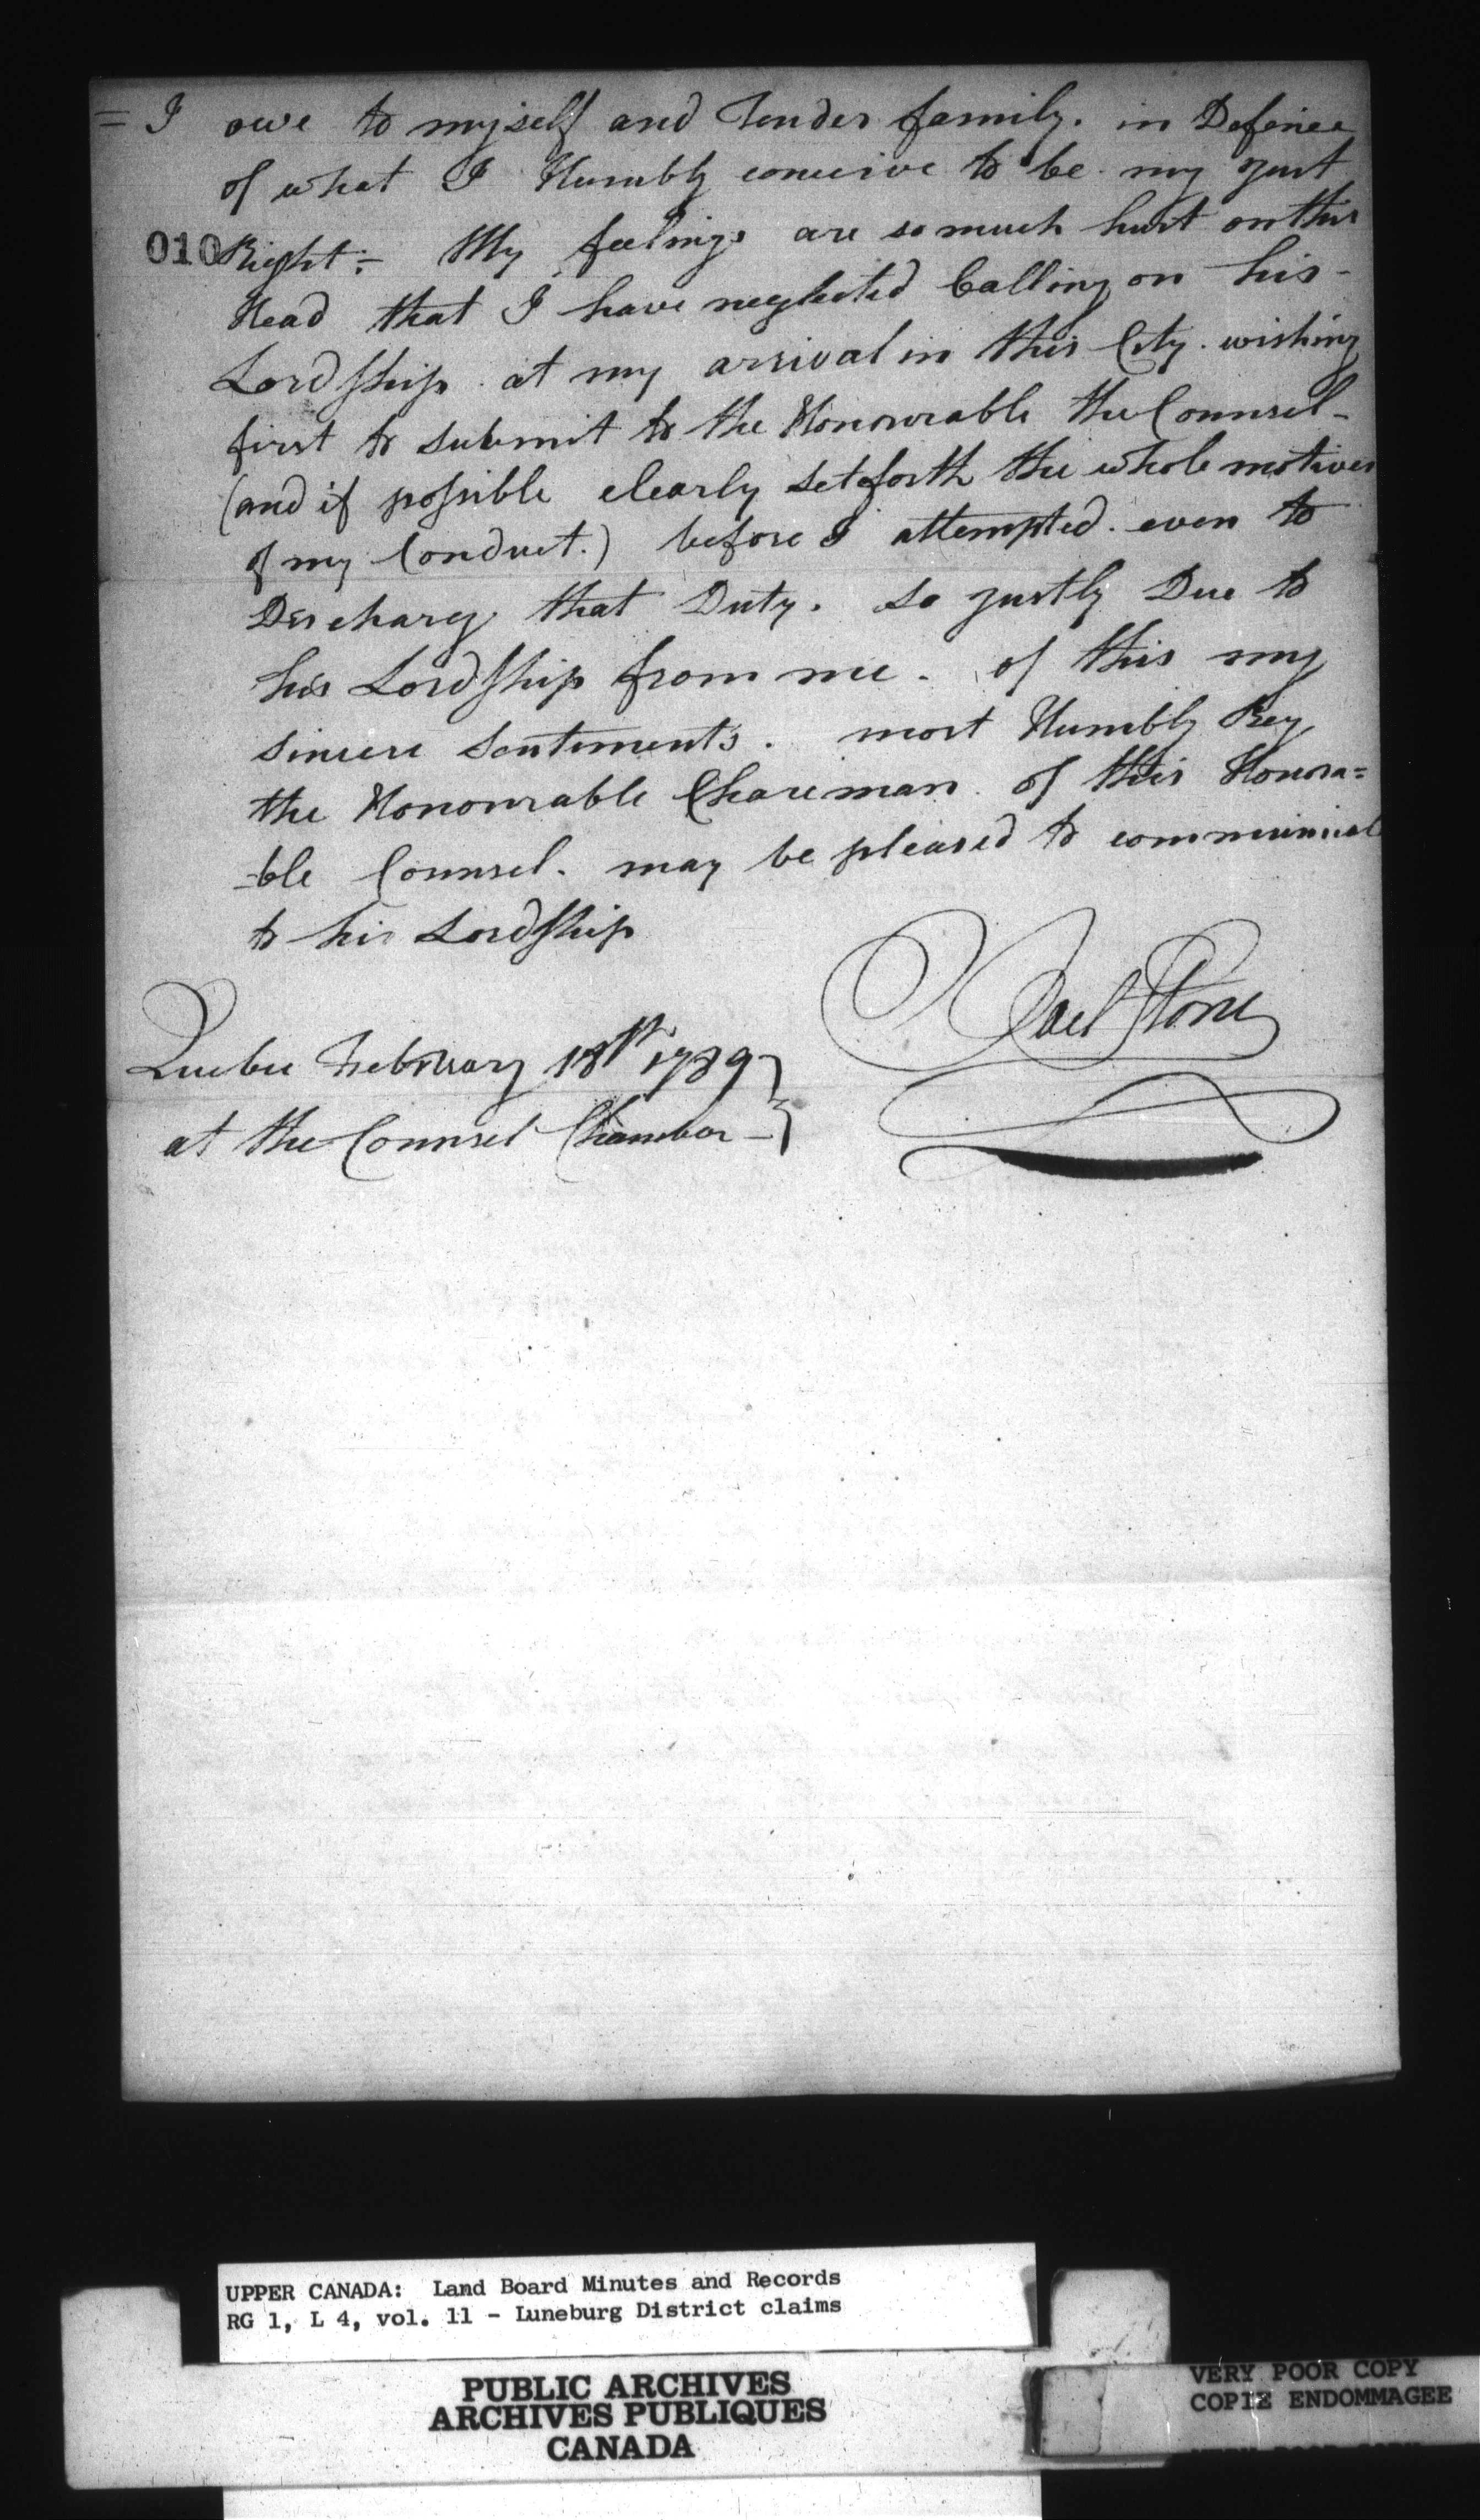 = I owe to myself and Tender family. in Defence
of what I Humbly conceive to be my Just
010
Right:- My feelings are so much hurt on this
Head that I have neglected Calling on his-
Lordship. at my arrival in this City. wishing
first to submit to the Honourable the Counsel-
(and if possible clearly set forth the whole motives
of my Conduct.) before I attempted. even to
Discharg that Duty. so justly Due to
his Lordship from me. of this my
sincere Sentiments. most Humbly Beg
the Honourable Chareman. of this Honora=
-ble Counsel. may be pleased to
to his Lordship
Joel Stone
Quebec February 18th 1789
at the Counsel Chamber -
UPPER CANADA: Land Board Minutes and Records
RG 1, L 4, vol. 11 - Luneburg District claims
PUBLIC ARCHIVES
ARCHIVES PUBLIQUES
CANADA
VERY POOR COPY
COPIE ENDOMMAGEE